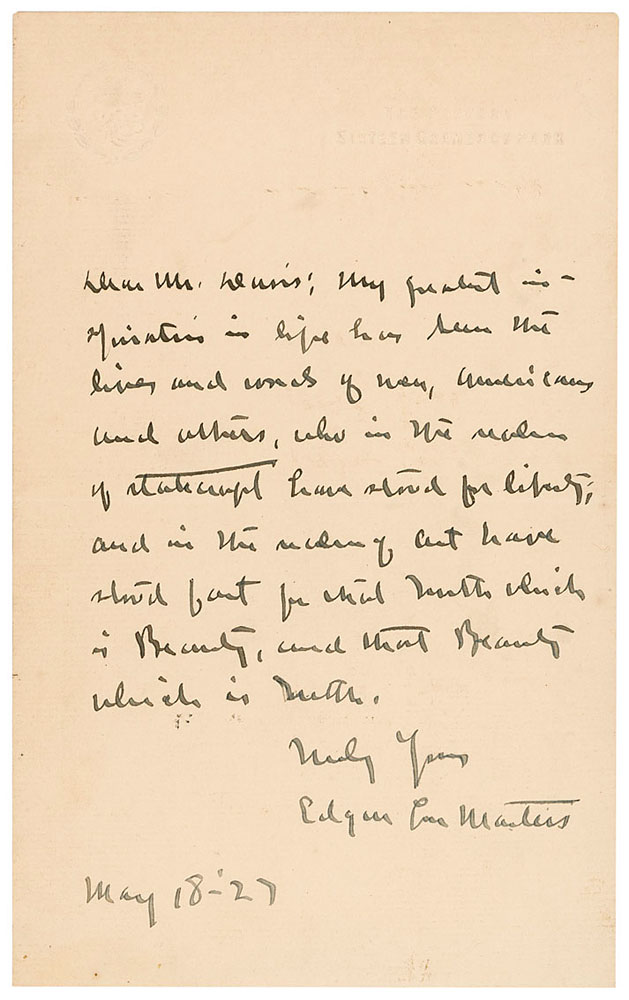 Dear Mr. Davis: My greatest in-
spiration in life has been the
lives and words of men, Americans
and others, who in the realm
of statecraft have stood for liberty;
and in the realm of art have
stood fast for that Truth which
is Beauty, and that Beauty
which is Truth.
Truly Yours
Edgar Lee Masters
May 18-27